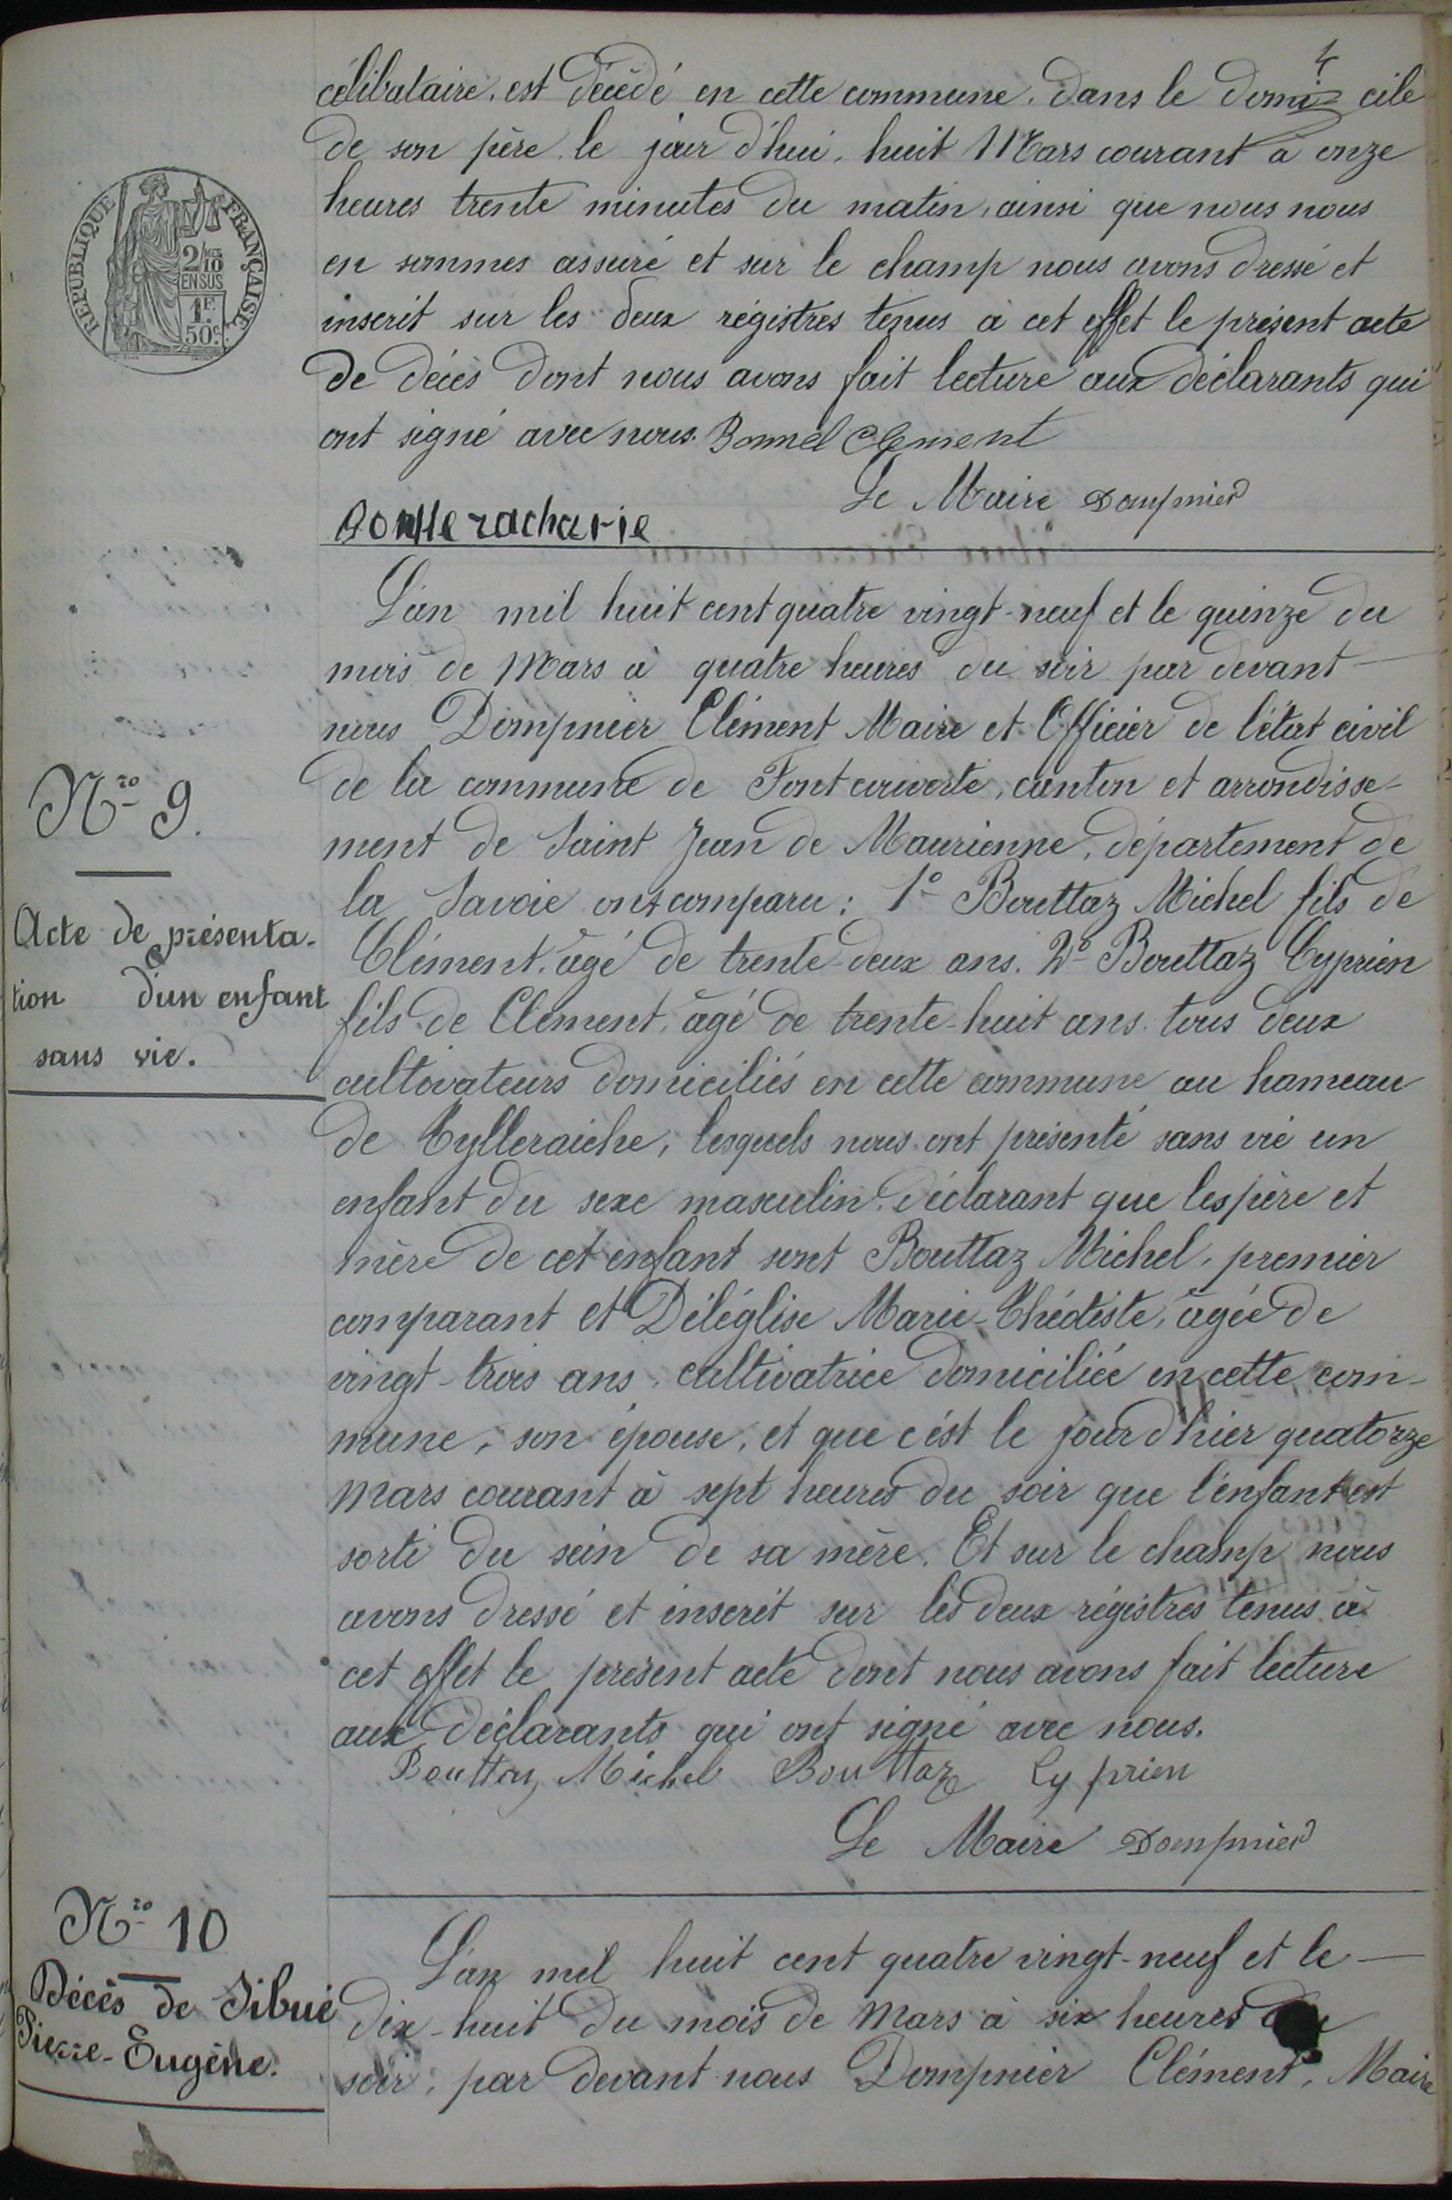 4
célibataire. est décédé en cette commune. dans le domi cile
de son père le jour d'hui, huit Mars courant à onze
heures trente minutes du matin, ainsi que nous nous
en sommes assuré et sur le champ nous avons dressé et
inscrit sur les deux régistres tenus à cet effet le présent acte
de décès dont nous avons fait lecture aux déclarants qui
ont signé avec nous. Bonnel Clement
Le Maire Dompnier
racharie
REPUBLIQUE FRANÇAISE
2/10
EN SUS
1F
50c.
Nro 9.
Acte de présenta-
tion d'un enfant
sans vie.
L'an mil huit cent quatre vingt-neuf et le quinze du
mois de Mars à quatre heures du soir par devant
nous Dompnier Clément Maire et Officier de l'état civil
de la commune de Fontcouverte, canton et arrondisse-
ment de Saint Jean de Maurienne, département de
la Savoie ont comparu : 1o Bouttaz Michel fils de
Clément, âgé de trente-deux ans. 2o Bouttaz Cyprien
fils de Clément, âgé de trente-huit ans tous deux
cultivateurs domiciliés en cette commune au hameau
de Cylleraiche, lesquels nous ont présenté sans vie un
enfant du sexe masculin. déclarant que les père et
mère de cet enfant sont Bouttaz Michel, premier
comparant et Déléglise Marie-Thédiste, âgée de
vingt-trois ans, cultivatrice domiciliée en cette com-
mune, son épouse, et que c'est le jour d'hier quatorze
Mars courant à sept heures du soir que l'enfant est
sorti du sein de sa mère. Et sur le champ nous
avons dressé et inscrit sur les deux régistres tenus à
cet effet le présent acte dont nous avons fait lecture
aux déclarants qui ont signé avec nous.
Bouttaz Michel Bouttaz Cyprien
Le Maire Dompnier
Nro 10
Décès de Sibué
Pierre-Eugène.
L'an mil huit cent quatre vingt-neuf et le
dix-huit du mois de Mars à six heures du
soir, par devant nous Dompnier Clément, Maire